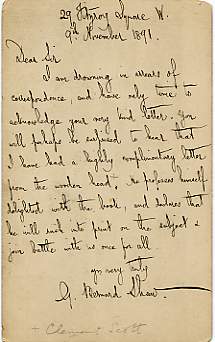 29 Fitzroy Square W.
9th November 1891.
Dear Sir
I am drowning in arrears of
correspondence, and have only time to
acknowledge your very kind letter. You
will perhaps be surprised to hear that
I have had a highly complimentary letter
from the wooden head. He professes himself
delighted with the book, and declares that
he will rush into print on the subject &
join battle with us once for all
yrs very truly
G. Bernard Shaw
Clement Scott